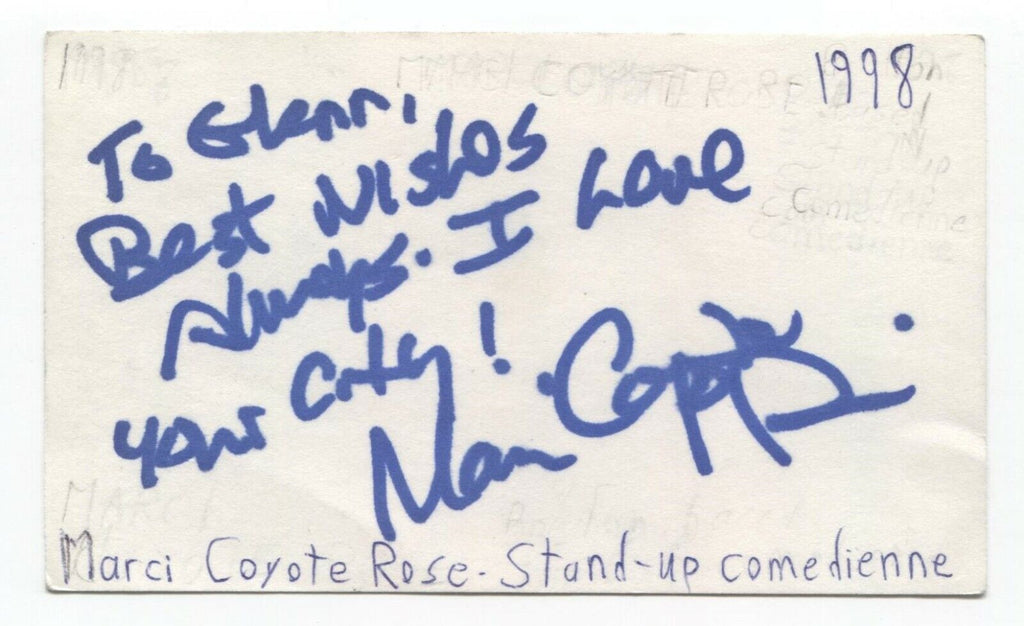 1998
To Glenn,
Best Wishes
Always. I Love
your City!
Marci Coyote Rose
Marci Coyote Rose - Stand-up comedienne